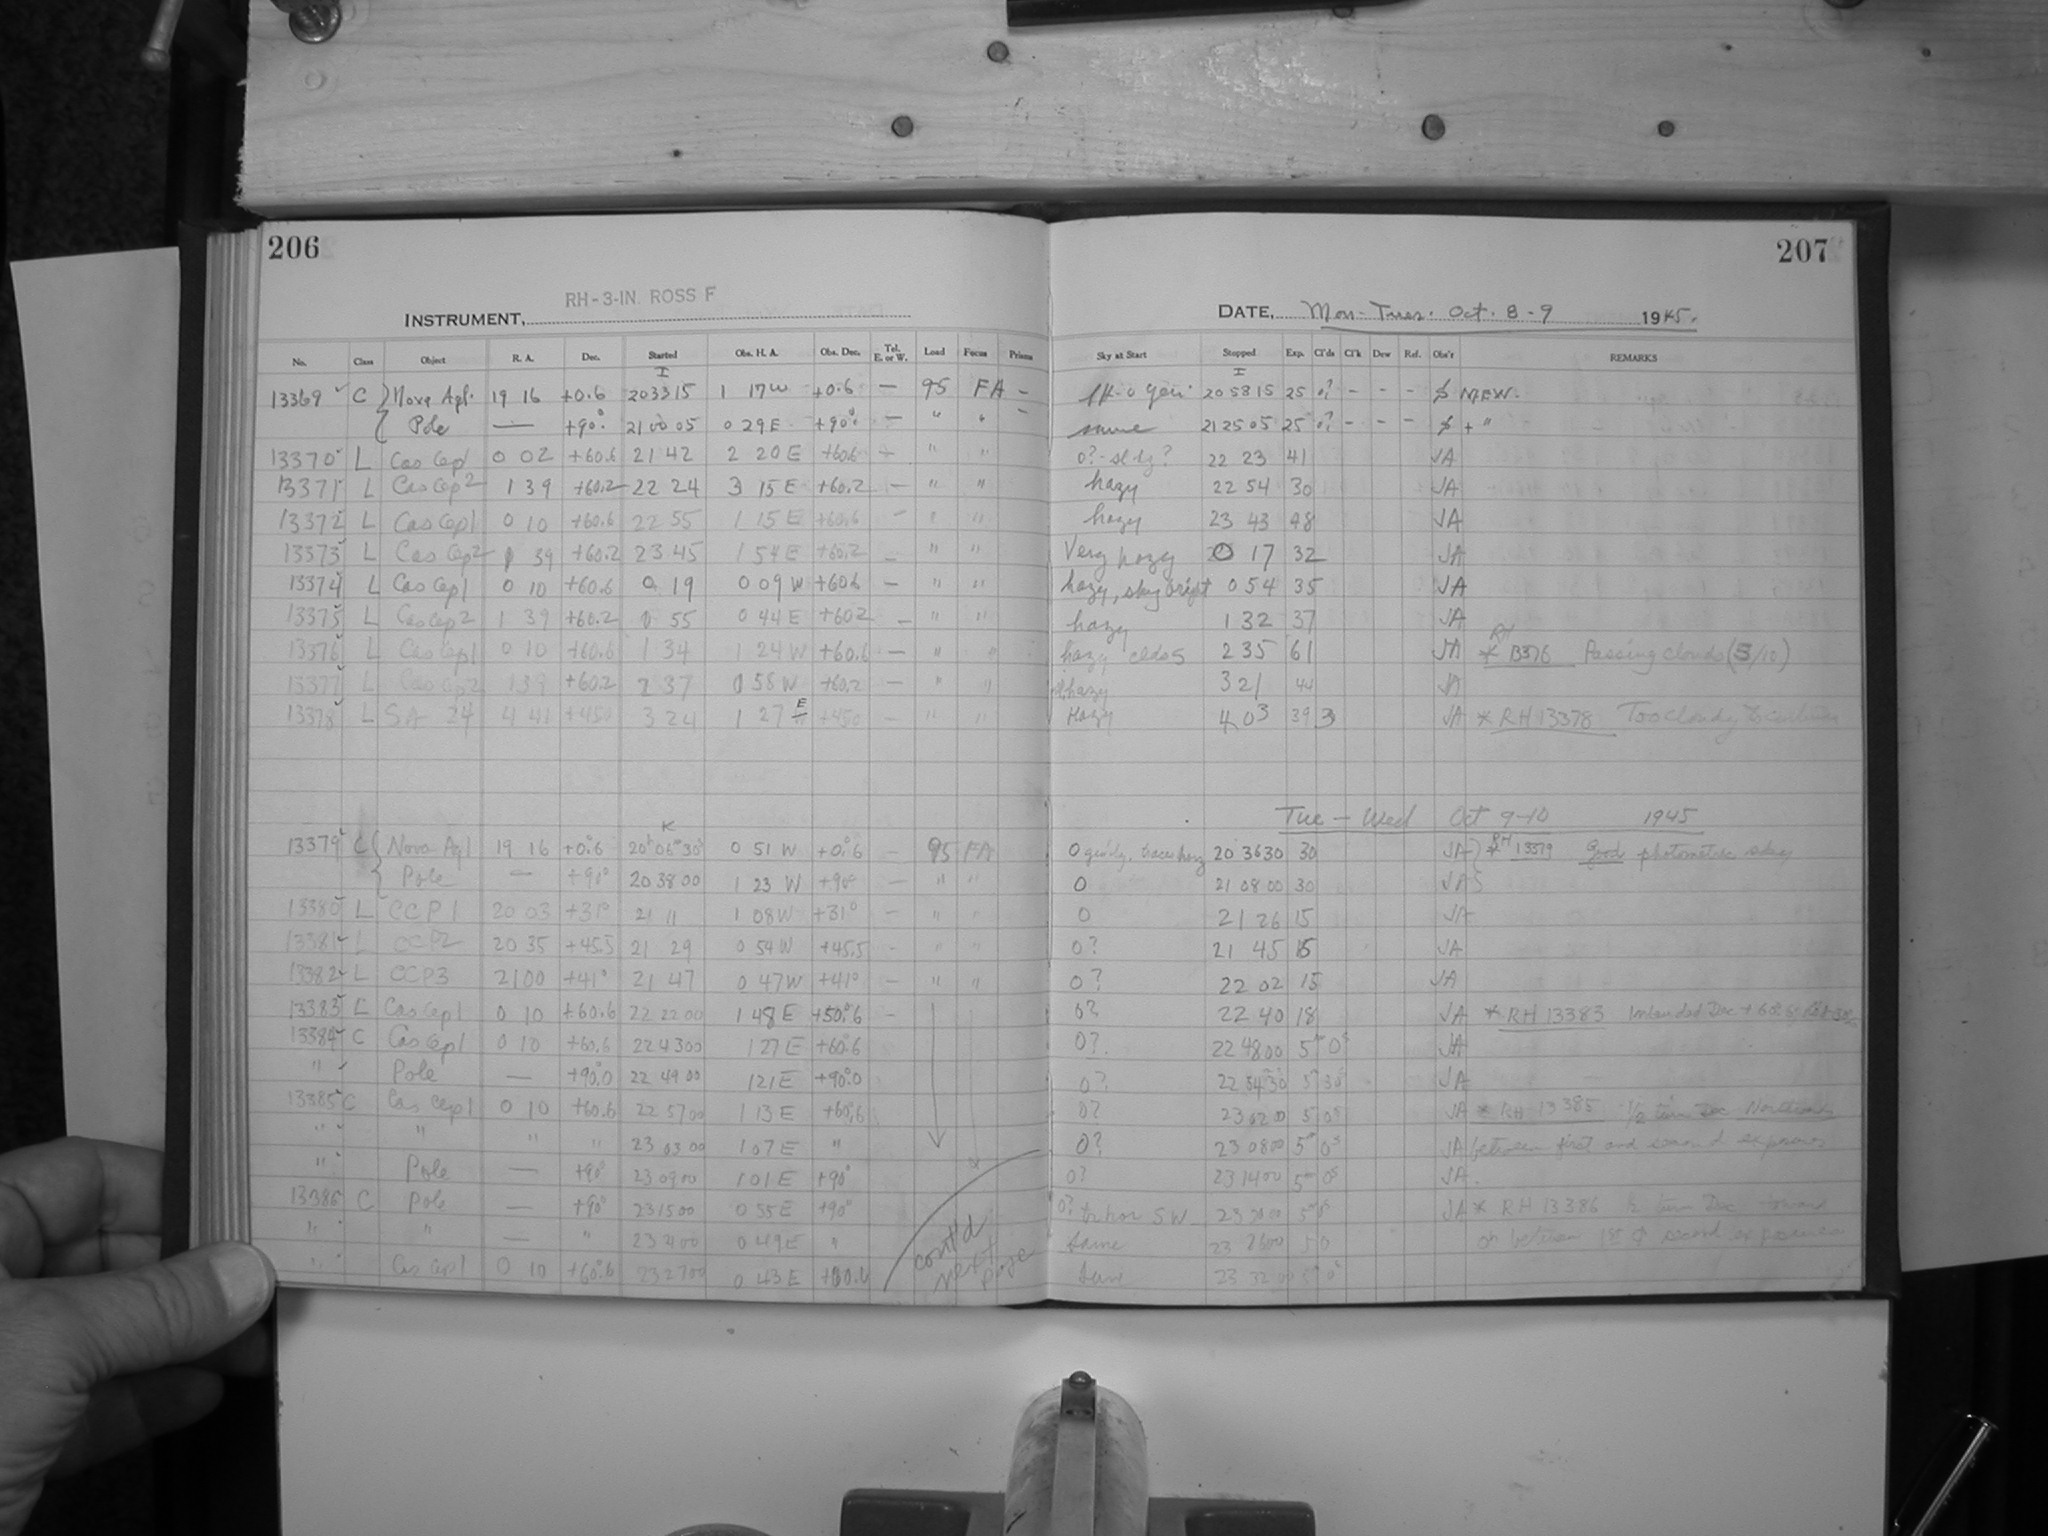 206
207
RH-3-IN. ROSS F
INSTRUMENT,
DATE, Mon-Tues. Oct. 8-9 1945.
No. Class Object R. A. Dec. Started Obs. H. A. Obs. Dec. Tel. E. or W. Load Focus Prisms Sky at Start Stopped Exp. Cl'ds Cl'k Dew Ref. Obs'r REMARKS
I I
13369 C Nova Aql. 19 16 +0.6 203315 1 17W +0.6 — 95 FA — 205815 25 0? - - - $ MEW.
Pole — +90° 210005 0 29E +90° — " " — same 212505 25 0? - - - $ + "
13370 L Cas Cep1 0 02 +60.6 21 42 2 20 E +60.6 " " 0?- sl hz? 22 23 41 JA
13371 L Cas Cep2 1 39 +60.2 22 24 3 15 E +60.2 — " " hazy 22 54 30 JA
13372 L Cas Cep1 0 10 +60.6 22 55 1 15 E +60.6 — " " hazy 23 43 48 JA
13373 L Cas Cep2 1 39 +60.2 23 45 1 54 E +60.2 — " " Very hazy 0 17 32 JA
13374 L Cas Cep1 0 10 +60.6 0 19 0 09 W +60.6 — " " hazy, sky bright 0 54 35 JA
13375 L Cas Cep2 1 39 +60.2 0 55 0 44 E +60.2 — " " hazy 1 32 37 JA
13376 L Cas Cep1 0 10 +60.6 1 34 1 24 W +60.6 — " " hazy clds 5 2 35 61 JA * RH 13376 Passing clouds (5/10)
13377 L Cas Cep2 1 39 +60.2 2 37 0 58 W +60.2 — " " hazy 3 21 44 JA
13378 L SA 24 4 41 +45.0 3 24 1 27 E +45.0 — " " Hazy 4 03 39 3 JA * RH 13378 Too cloudy to
Tue — Wed Oct 9-10 1945
K
13379 C Nova Aql 19 16 +0.6 20h 06m 30s 0 51 W +0.6 - 95 FA 0 20 36 30 30 JA * RH 13379 Good photometric sky
Pole — +90° 20 38 00 1 23 W +90° — " " 0 21 08 00 30 JA
13380 L CCP1 20 03 +31° 21 11 1 08W +31° - " " 0 21 26 15 JA
13381 L CCP2 20 35 +45.5 21 29 0 54 W +45.5 - " " 0? 21 45 15 JA
13382 L CCP3 21 00 +41° 21 47 0 47W +41° — " " 0? 22 02 15 JA
13383 L Cas Cep1 0 10 +60.6 22 22 00 1 48 E +50.6 - 0? 22 40 18 JA * RH 13383 Intended Dec +60.6
13384 C Cas Cep1 0 10 +60.6 22 43 00 1 27 E +60.6 0? 22 48 00 5m 0s JA
" Pole — +90.0 22 49 00 1 21 E +90.0 0? 22 54 30 5 30 JA
13385 C Cas Cep1 0 10 +60.6 22 57 00 1 13 E +60.6 0? 23 02 00 5 0s JA * RH 13385 1/2 turn Dec Northward
" " " " 23 03 00 1 07 E " 0? 23 08 00 5m 0s JA between first and second exposures
" Pole — +90° 23 09 00 1 01 E +90° 0? 23 14 00 5m 0s JA
13386 C Pole — +90° 23 15 00 0 55 E +90° 0? 5m 0s JA * RH 13386 1/2 turn Dec toward
" " — " 0 49 E " Same 23 26 00 5 0 between 1st & second exposures
" Cas Cep1 0 10 +60.6 23 27 00 0 43 E Same 23 32 00 5 0s
cont'd
next
page